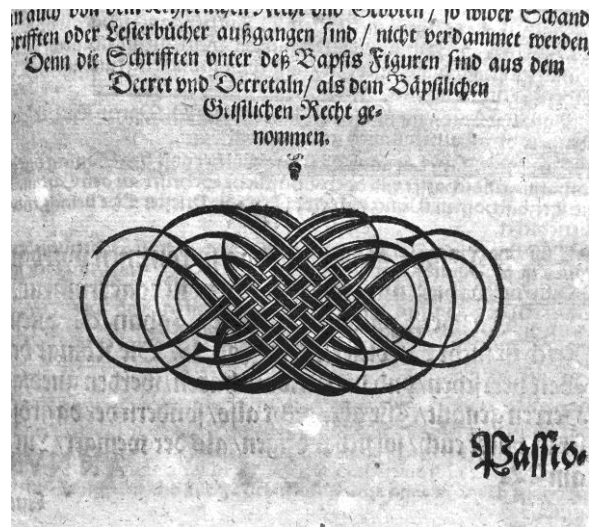 in auch von dem Keyserlichen Recht vnd Geboten / so wider Schand
schrifften oder Lesterbücher außgangen sind / nicht verdammet werden,
Denn die Schrifften vnter deß Bapsts Figuren sind aus dem
Decret vnd Decretaln / als dem Bäpstlichen
Geistlichen Recht ge-
nommen.
Passio-